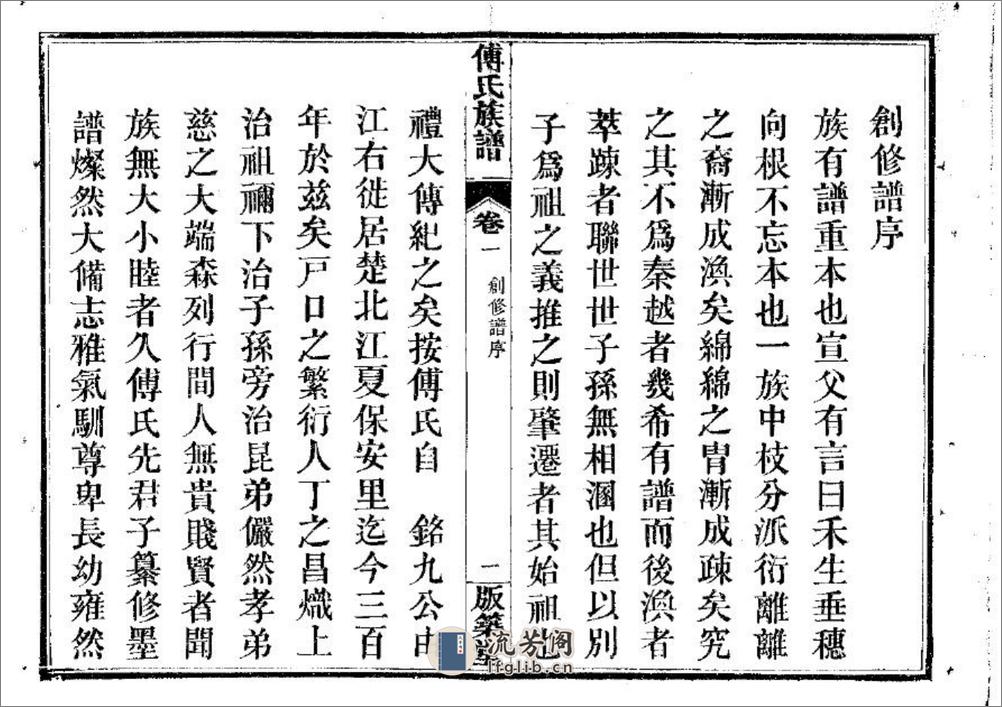 創修譜序
族有譜重本也宣父有言曰禾生垂穗
向根不忘本也一族中枝分派衍離離
之裔漸成渙矣綿綿之胄漸成疎矣究
之其不爲秦越者幾希有譜而後渙者
萃踈者聯世世子孫無相溷也但以別
子爲祖之義推之則肇遷者其始祖也
傅氏族譜
卷一
創修譜序
一
版築堂
禮大傳紀之矣按傅氏自 銘九公由
江右徙居楚北江夏保安里迄今三百
年於茲矣戸口之繁衍人丁之昌熾上
治祖禰下治子孫旁治昆弟儼然孝弟
慈之大端森列行間人無貴賤賢者聞
族無大小睦者久傅氏先君子纂修墨
譜燦然大備志雅氣馴尊卑長幼雍然
流芳阁
lfglib.cn